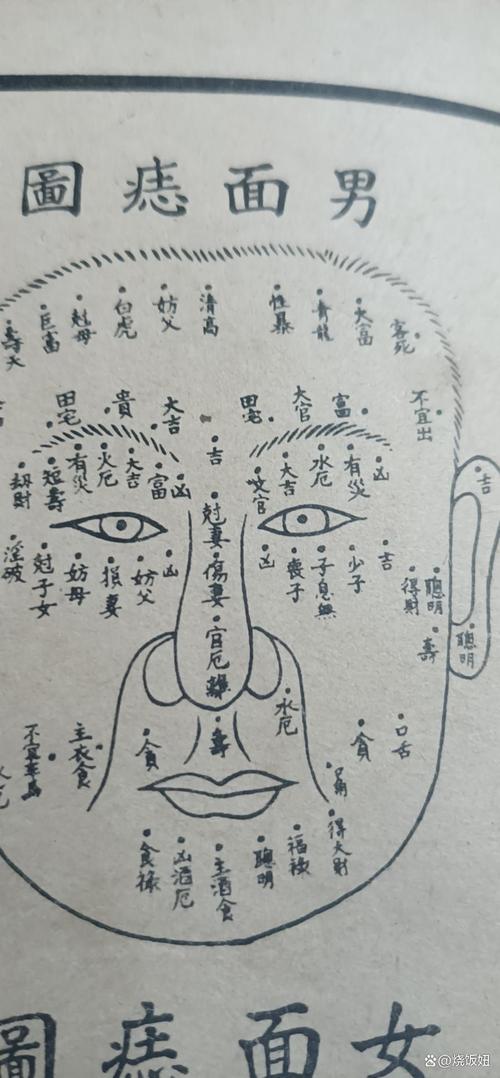 男面痣圖
客死
大富
青龍
性暴
清高
妨父
白虎
尅母
巨富
壽夭
不宜出
富
大官
田宅
大吉
貴
田宅
吉
凶
有災
水厄
大吉
凶
富
大吉
火厄
有災
短壽
劫財
吉
尅妻
傷妻
官厄
吉
少子
子息無
喪子
凶
凶
妨父
損妻
妨母
尅子女
淫破
聰明
得財
壽
聰明
水厄
壽
口舌
貪
貪
主衣食
得大財
福祿
聰明
主酒食
凶酒厄
食祿
女面痣圖
@烧饭妞